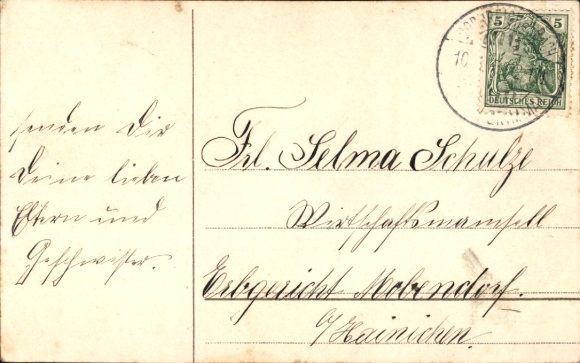 senden Dir
Deine lieben
Eltern und
Geschwister.
5 5
DEUTSCHES REICH
10
Frl. Selma Schulze
Wirtschaftsmamsell
Erbgericht Mobendorf.
b/Hainichen.